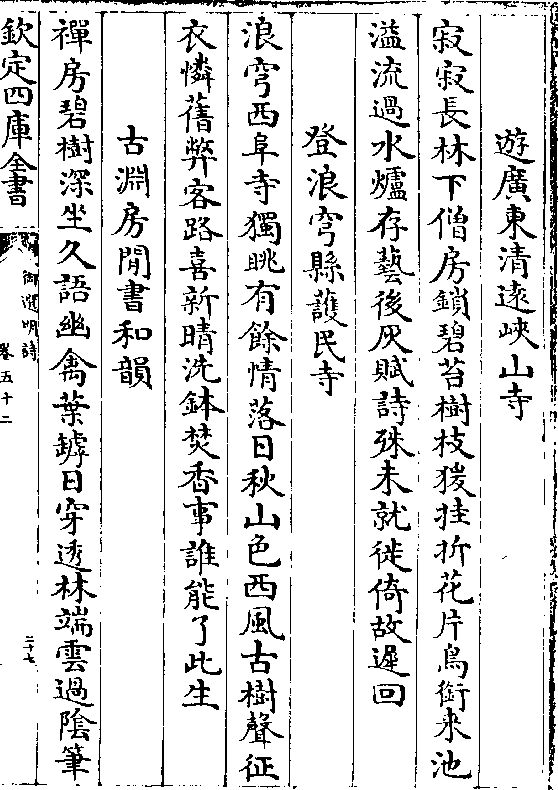 遊廣東清遠峽山寺
寂寂長林下僧房鎖碧苔樹枝猨挂折花片鳥銜来池
溢流過水爐存藝後灰賦詩殊未就徙倚故遲回
登浪穹縣護民寺
浪穹西阜寺獨眺有餘情落日秋山色西風古樹聲征
衣憐舊弊客路喜新晴洗鉢焚香事誰能了此生
古淵房閒書和韻
禪房碧樹深坐久語幽禽葉罅日穿透林端雲過陰筆
欽定四庫全書
御選明詩
卷五十二
三十七